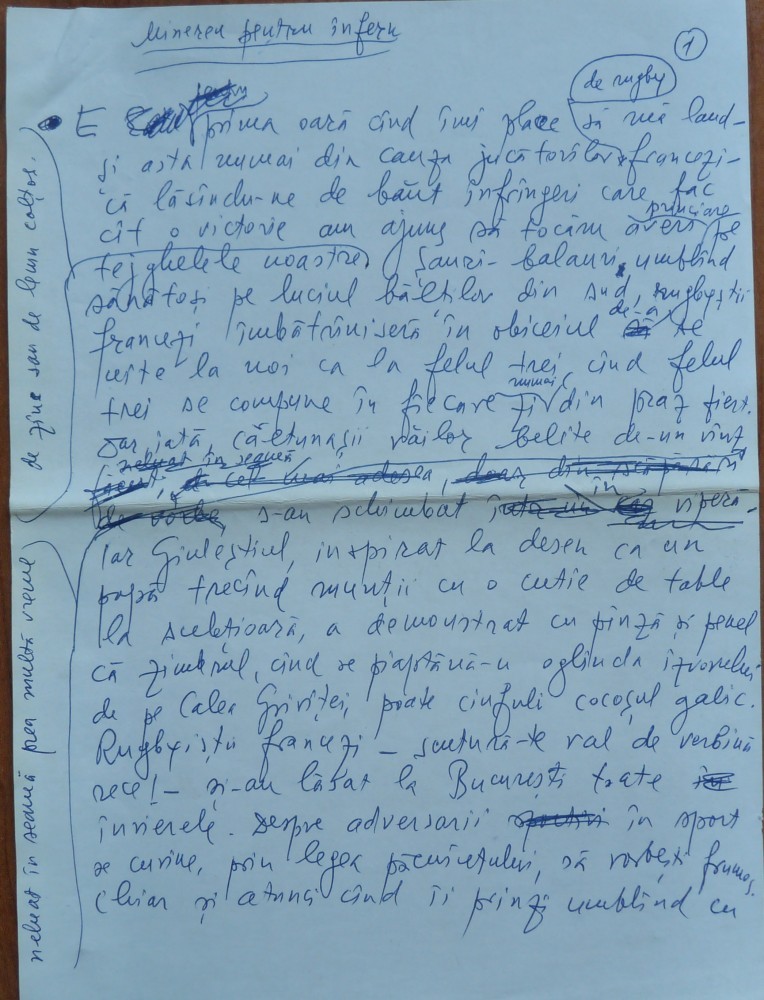 Minerea pentru infern
1
de rugby
E prima oară cînd îmi place să mă laud –
și asta numai din cauza jucătorilor francezi –
că lăsîndu-ne de băut înfrîngeri care fac
cît o victorie am ajuns să tocăm averi princiare pe
tejghelele noastre. Sauri-balauri, umblînd
sănătoși pe luciul băltilor din sud, rugbyștii
francezi îmbătrîniseră în obiceiul de-a se
uita la noi ca la felul trei, cînd felul
trei se compune în fiecare zi numai din praz fiert.
Dar iată, cătunașii văilor belite de-un vînt
neluat în seamă
s-au schimbat în vipera.
Iar Giuleștiul, inspirat la desen ca un
popă trecînd munții cu o cutie de table
la subțioară, a demonstrat cu pînză și penel
că zimbrul, cînd se piaptănă-n oglinda izvorului
de pe Calea Griviței, poate ciufuli cocoșul galic.
Rugbyiștii francezi – scutură-te val de verbină
rece! – și-au lăsat la București toate
învierele. Despre adversarii în sport
se cuvine, prin legea păcuiețului, să vorbești frumos.
Chiar și atunci cînd îi prinzi umblînd cu
de zîne sau de lemn colțos.
neluat în seamă prea multă vreme